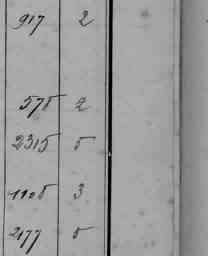 917 2
578 2
2315 5
1108 3
2177 5